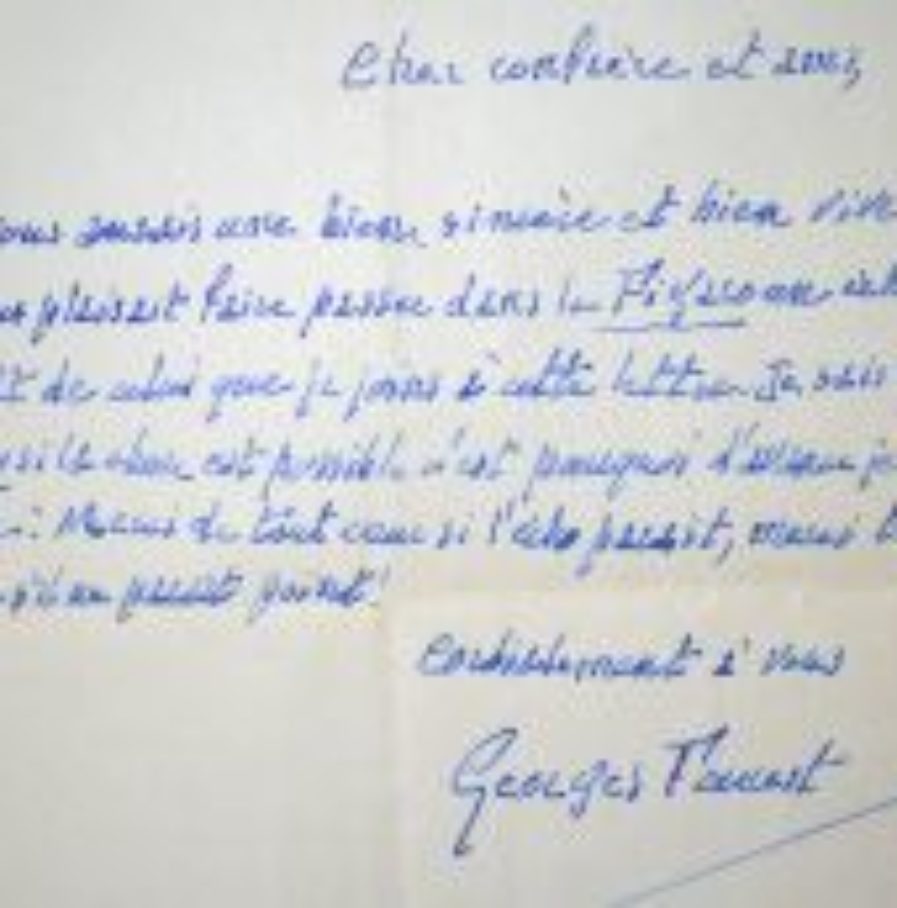 Cher confrère et ami,
vous aurais une bien sincère et bien vive
plaisait faire passer dans le Figaro une
de celui que je joins à cette lettre. Je sais
si la chose est possible c'est pourquoi d'avance je
Merci de tout cœur si l'écho parait, merci
s'il ne parait point!
Cordialement à vous
Georges